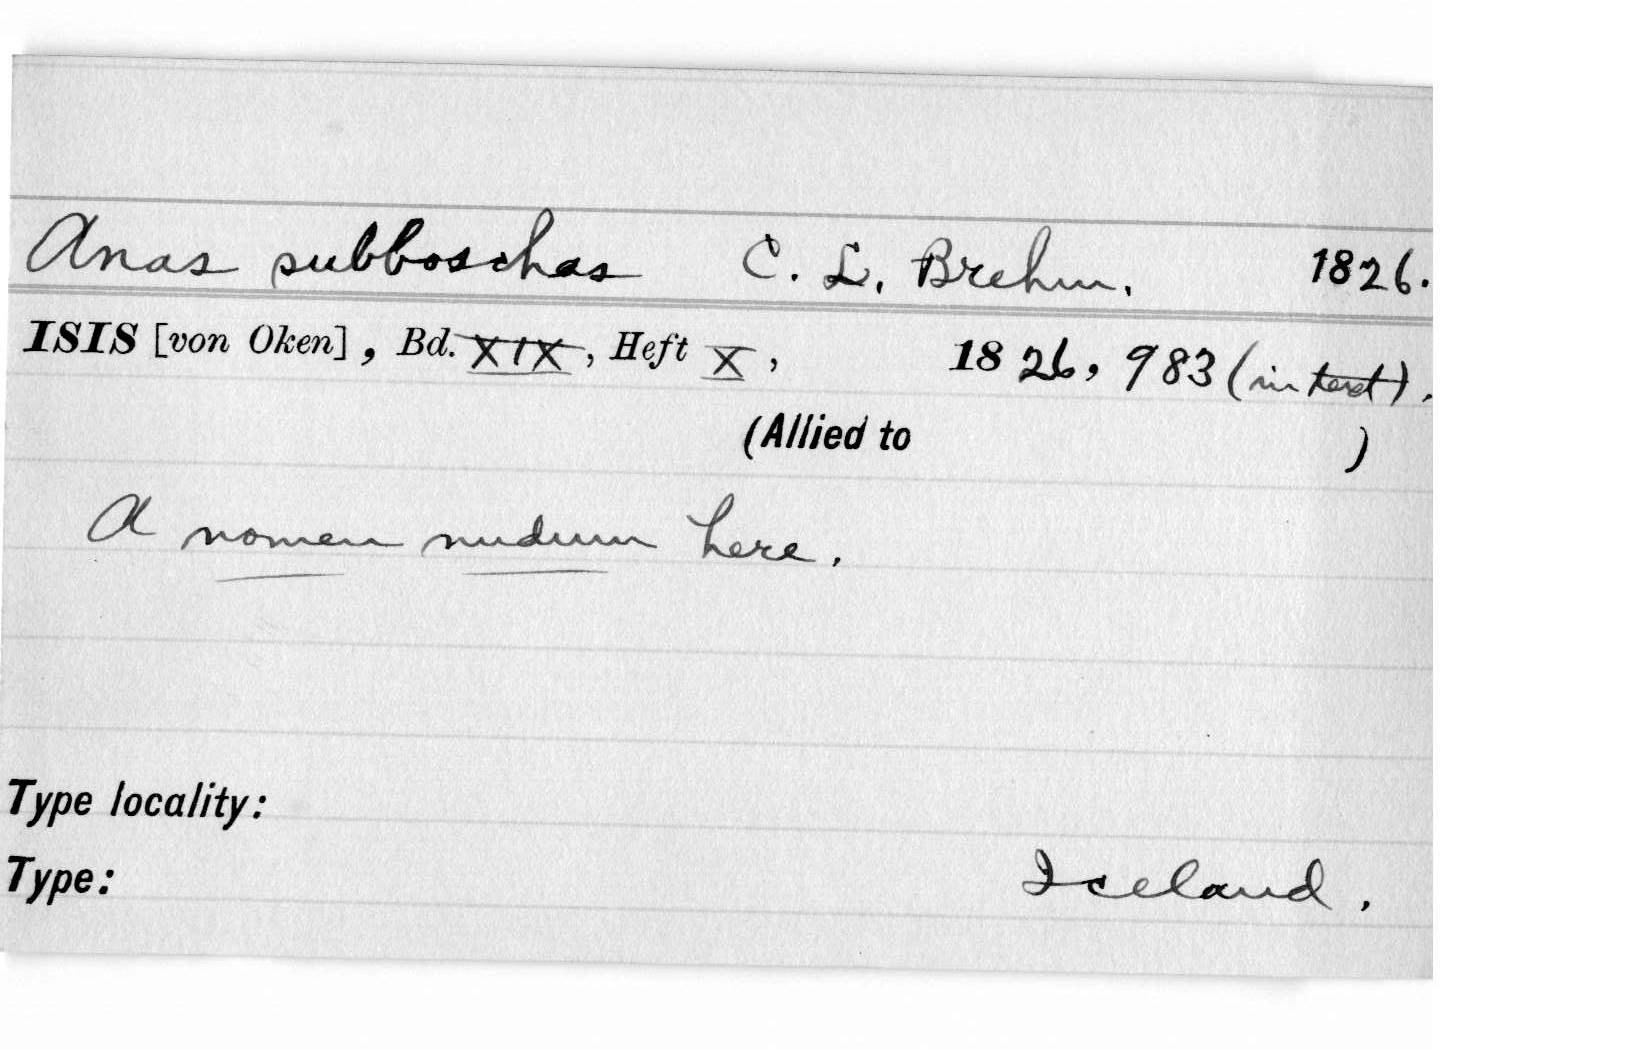 Anas subboschas C. L. Brehm. 1826.
ISIS [von Oken], Bd. XIX, Heft X, 1826, 983 (in text).
(Allied to )
A nomen nudum here.
Type locality:
Type: Iceland.